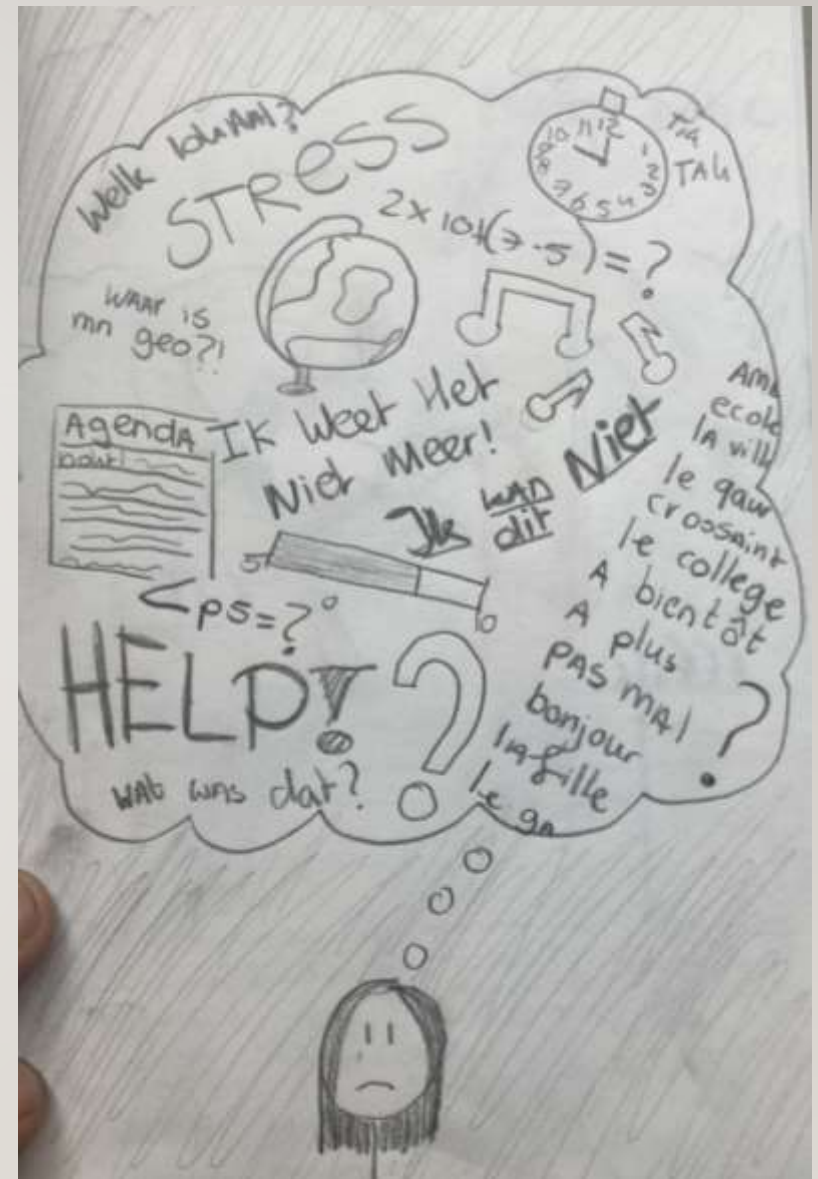 Welk lokaal?
STRESS
10 11 12 1 2 3 4 5 6 7 8 9
TIK
TAK
2 x 10+(7-5) = ?
WAAR IS
mn geo?!
AgendA
IK Weet Het
Niet Meer!
Ik kan dit Niet
5
0
<PS=?°
HELP!
?
WAt wAs dat?
AMi
ecole
lA vill
le gaur
croossaint
le college
A bientôt
A plus
PAS MAl
bonjour
lA fille
le ga
?